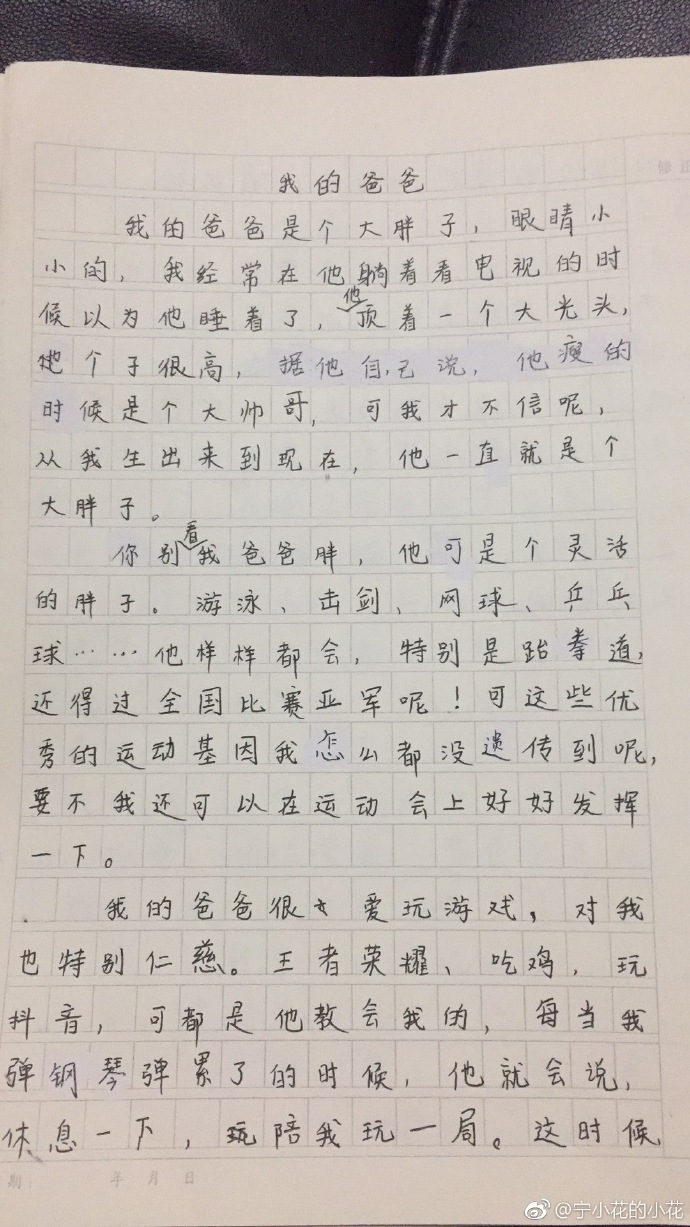 我的爸爸
我的爸爸是个大胖子，眼睛小
小的，我经常在他躺着看电视的时
候以为他睡着了，他顶着一个大光头，
他个子很高，据他自己说，他瘦的
时候是个大帅哥，可我才不信呢，
从我生出来到现在，他一直就是个
大胖子。
你别看我爸爸胖，他可是个灵活
的胖子。游泳、击剑、网球、乒乓
球……他样样都会，特别是跆拳道，
还得过全国比赛亚军呢！可这些优
秀的运动基因我怎么都没遗传到呢，
要不我还可以在运动会上好好发挥
一下。
我的爸爸很爱玩游戏，对我
也特别仁慈。王者荣耀、吃鸡，玩
抖音，可都是他教会我的，每当我
弹钢琴弹累了的时候，他就会说，
休息一下，玩陪我玩一局。这时候，
期： 年 月 日
@宁小花的小花